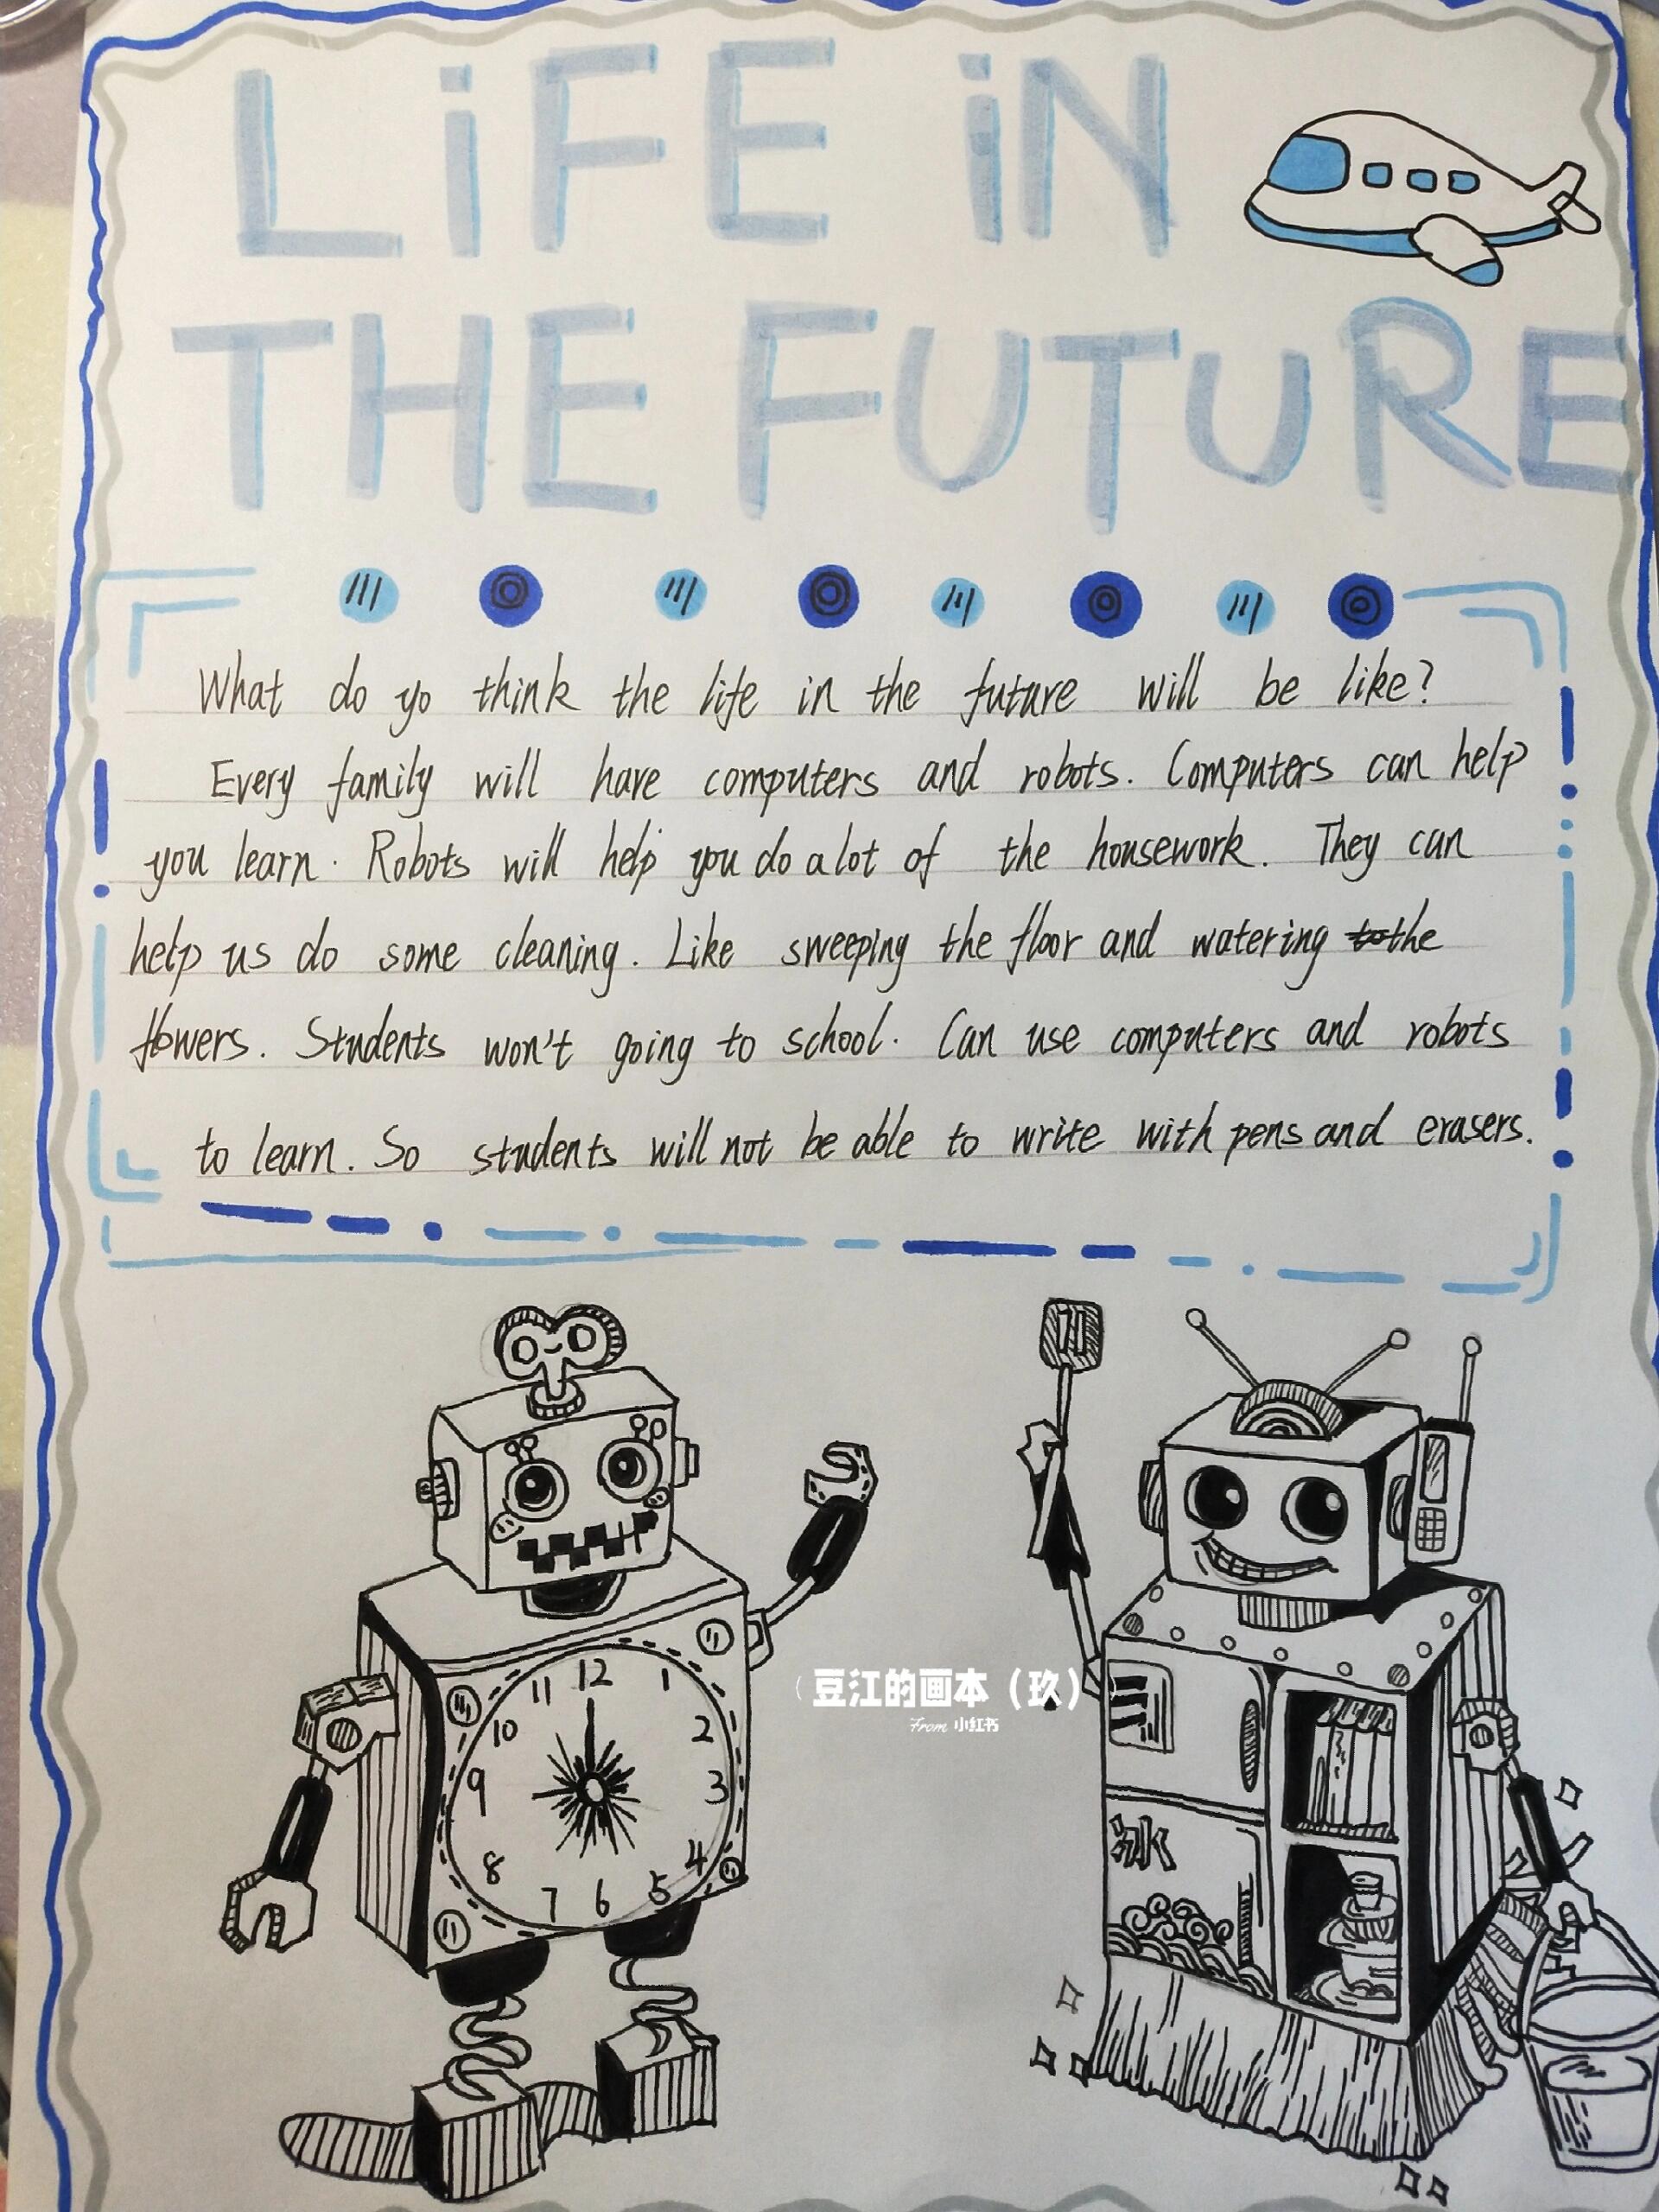 LiFE iN
THE FUTURE
What do yo think the life in the future will be like?
Every family will have computers and robots. Computers can help
you learn. Robots will help you do a lot of the housework. They can
help us do some cleaning. Like sweeping the floor and watering the
flowers. Students won't going to school. Can use computers and robots
to learn. So students will not be able to write with pens and erasers.
12
11 1
10 2
9 3
8 4
7 6 5
冰
豆江的画本（玖）
From 小红书